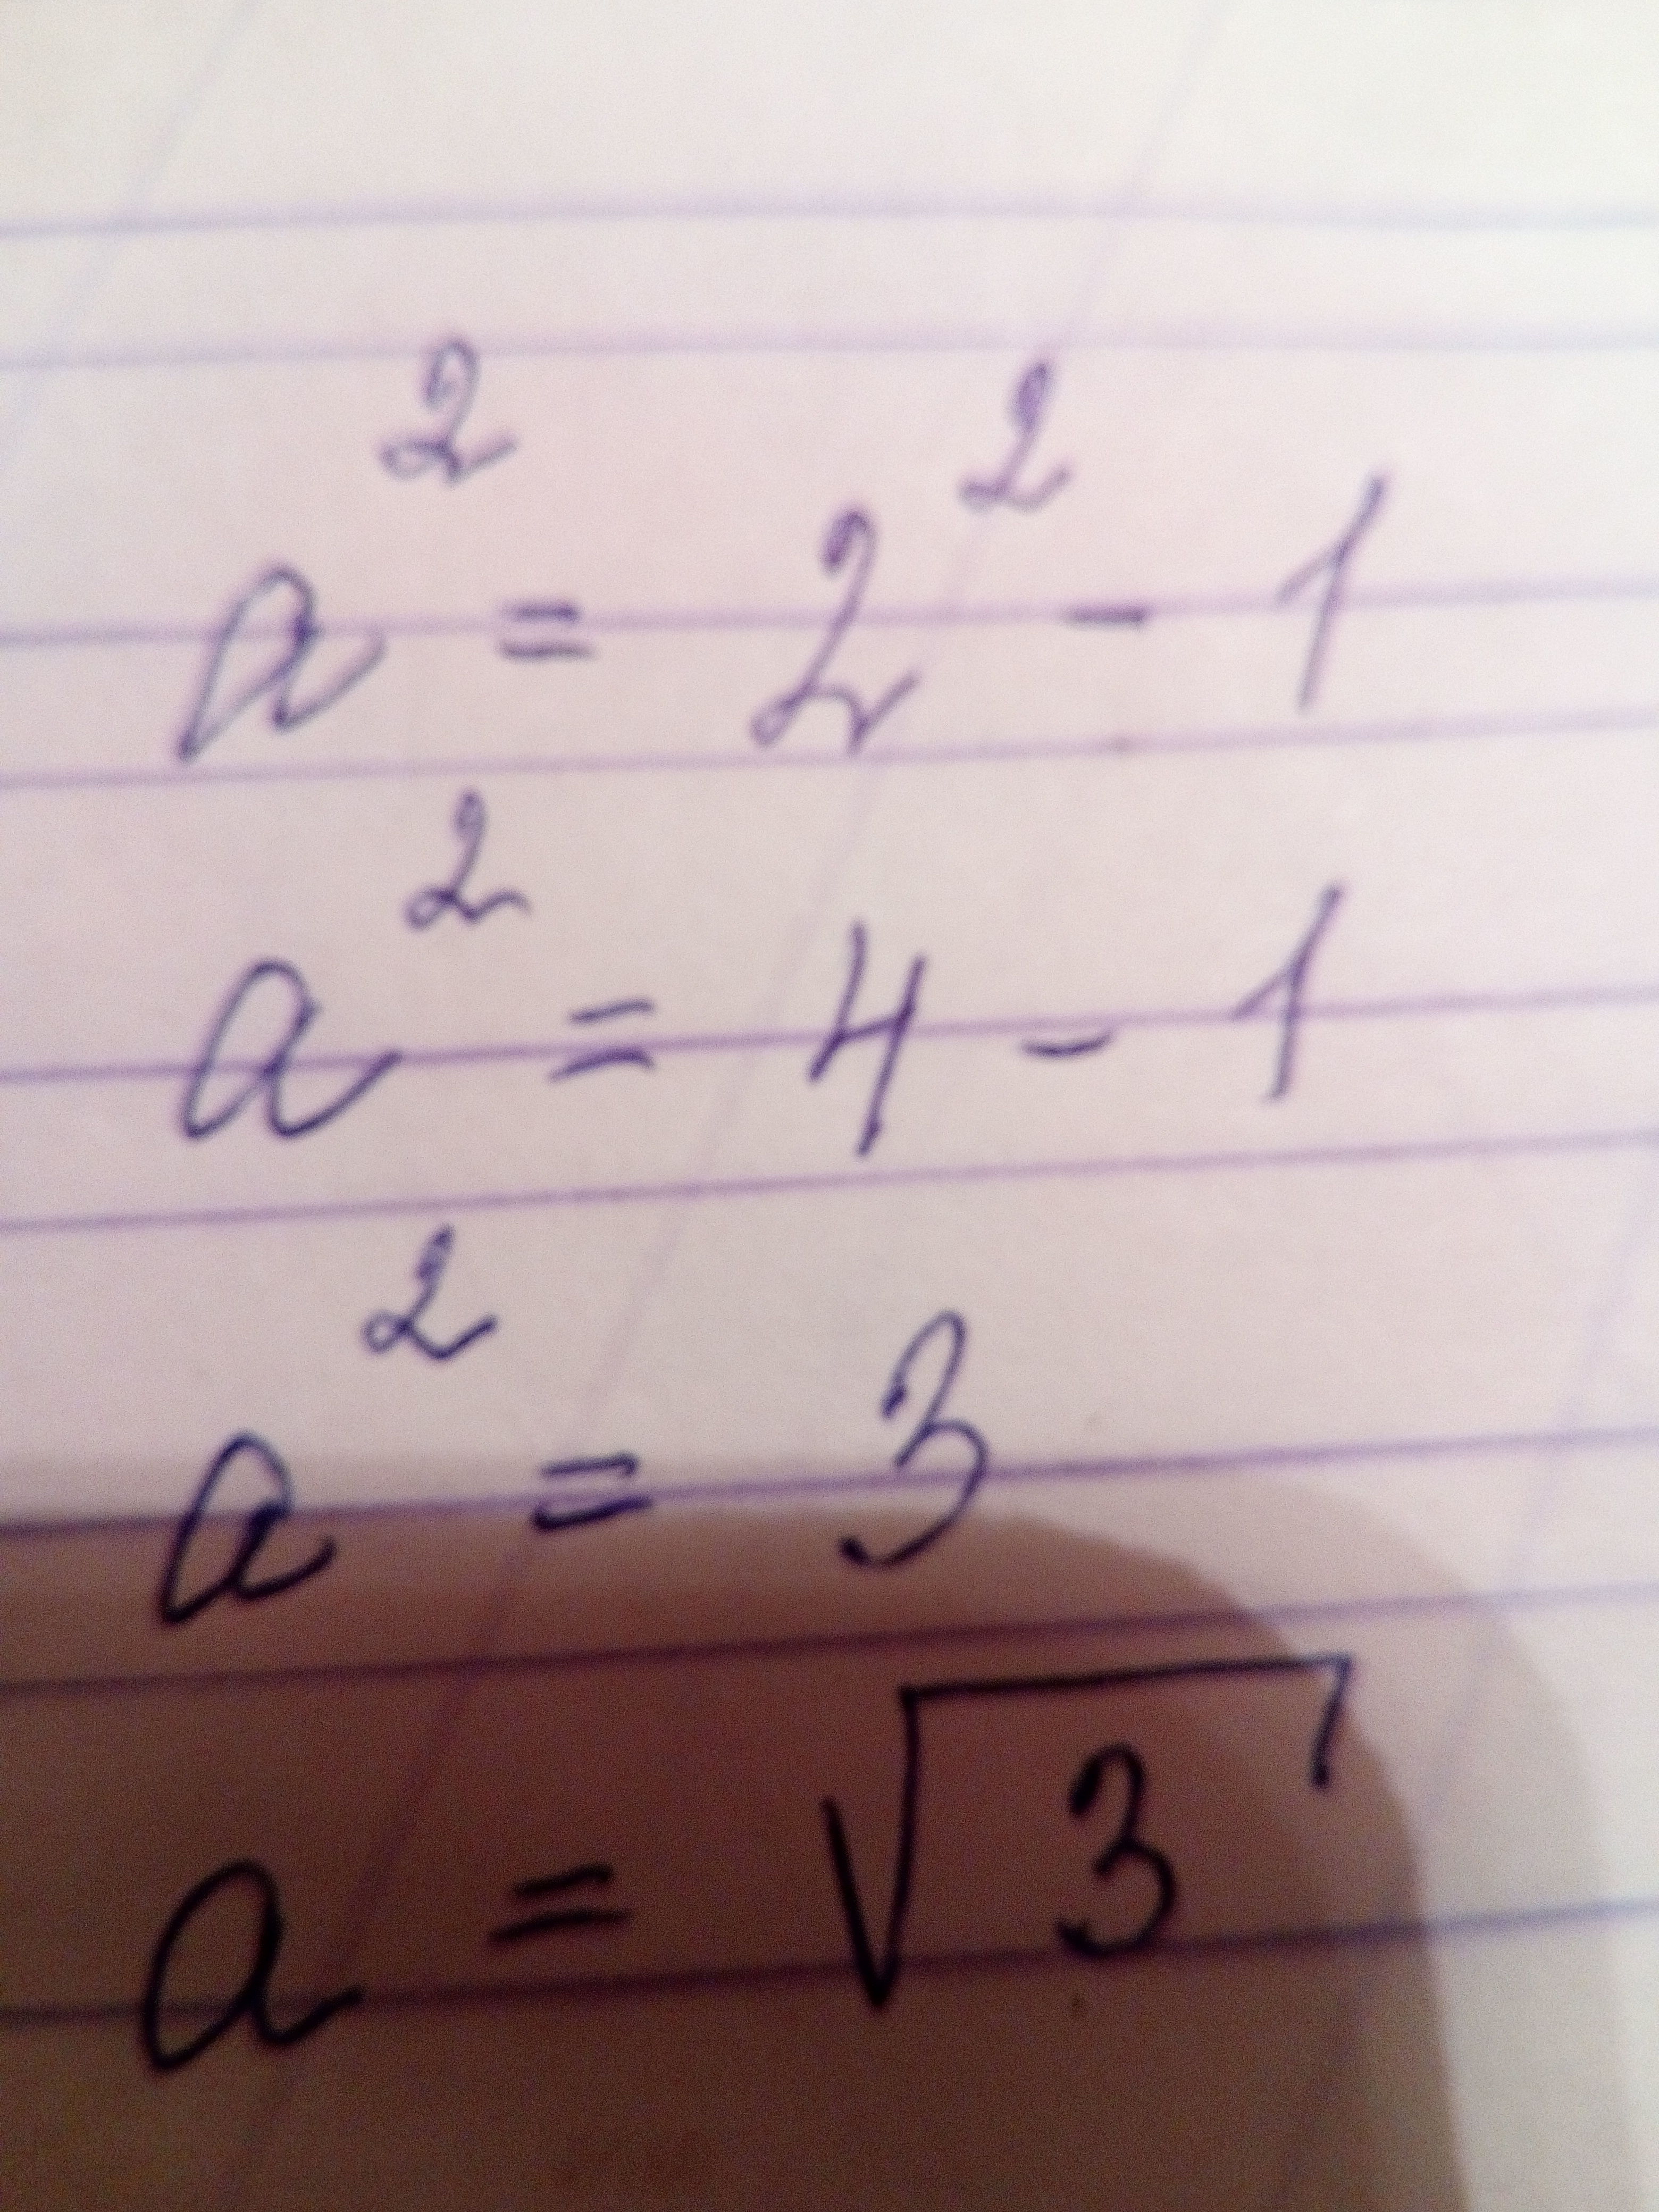 a² = 2² - 1
a² = 4 - 1
a² = 3
a = √3